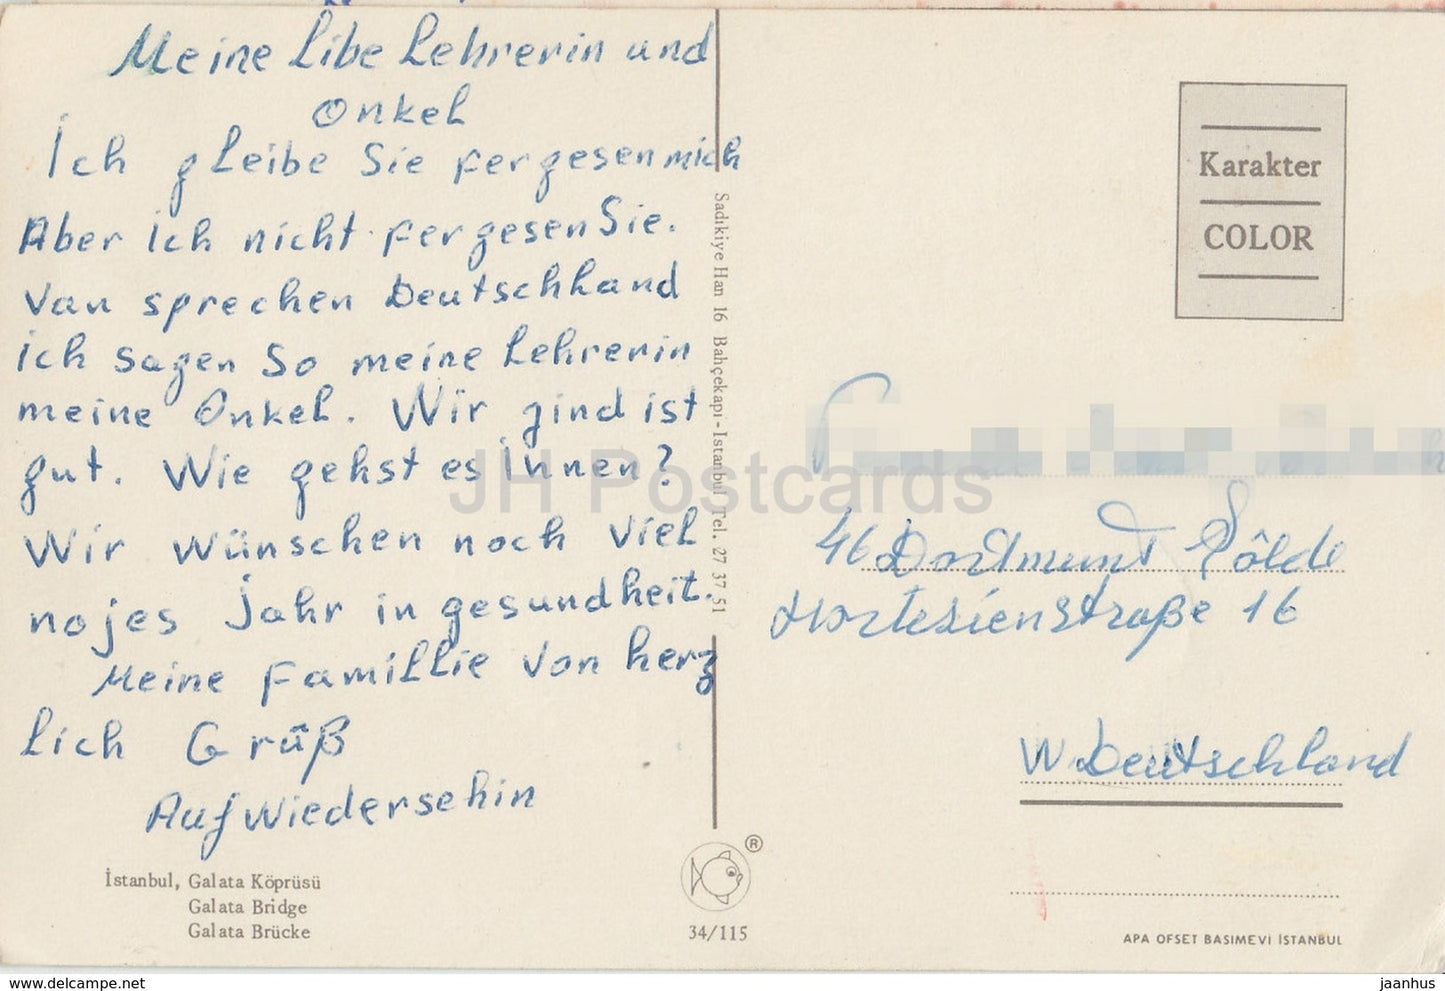 Meine Libe Lehrerin und
Onkel
İch gleibe Sie fergesen mich
Aber ich nicht fergesen Sie.
Van sprechen Deutschland
ich sagen So meine Lehrerin
meine Onkel. Wir gind ist
gut. Wie gehst es İnnen?
Wir wünschen noch viel
nojes Jahr in gesundheit.
Meine Famillie von herz
lich Grüß
Auf Wiedersehin
İstanbul, Galata Köprüsü
Galata Bridge
Galata Brücke
Sadıkiye Han 16 Bahçekapı-Istanbul Tel. 27 37 51
®
34/115
Karakter
COLOR
46 Dortmunt Sölde
16
W. Deutschland
APA OFSET BASIMEVİ İSTANBUL
JH Postcards
www.delcampe.net
jaanhus